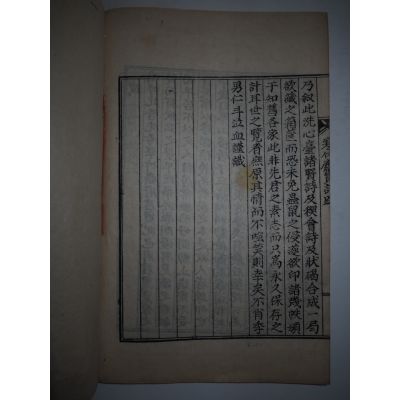 乃叙此洗心臺諸賢詩及稧會詩及狀碣合成一局
欲藏之篋而恐未免蟲鼠之侵遂欲印諸幾帙頒
于知舊各家此非先君之素志而只爲永久保存之
計耳世之覽者無原其情而不嗤笑則幸矣不肖季
男仁斗泣血謹識